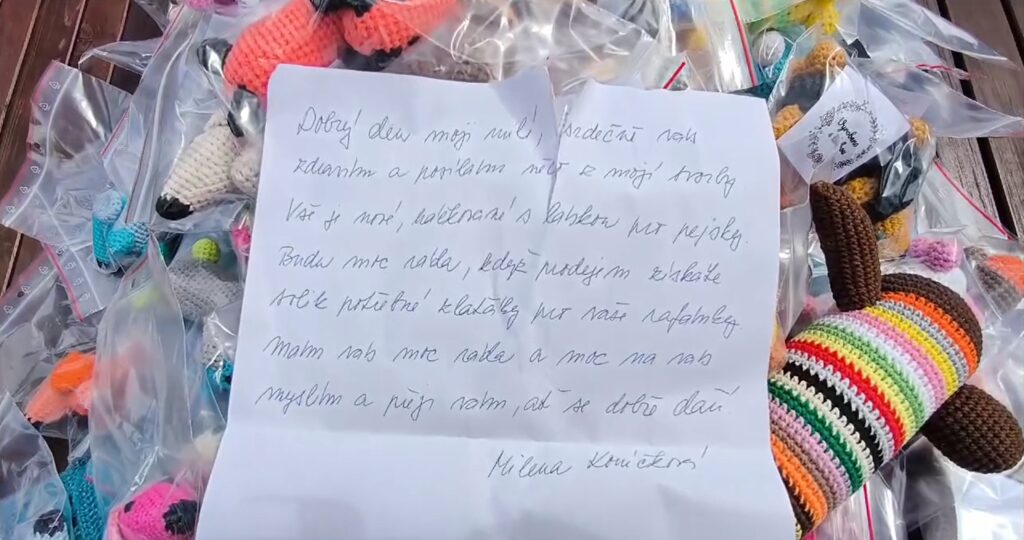 Dobrý den moji milí, srdečně vás
zdravím a posílám něco z mojí tvorby
Vše je nové, háčkované s láskou pro pejsky.
Budu moc ráda, když prodejem získáte
tolik potřebné zlaťáky pro vaše rafánky.
Mám vás moc ráda a moc na vás
myslím a přeji vám, ať se dobře daří.
Milena Koníčková